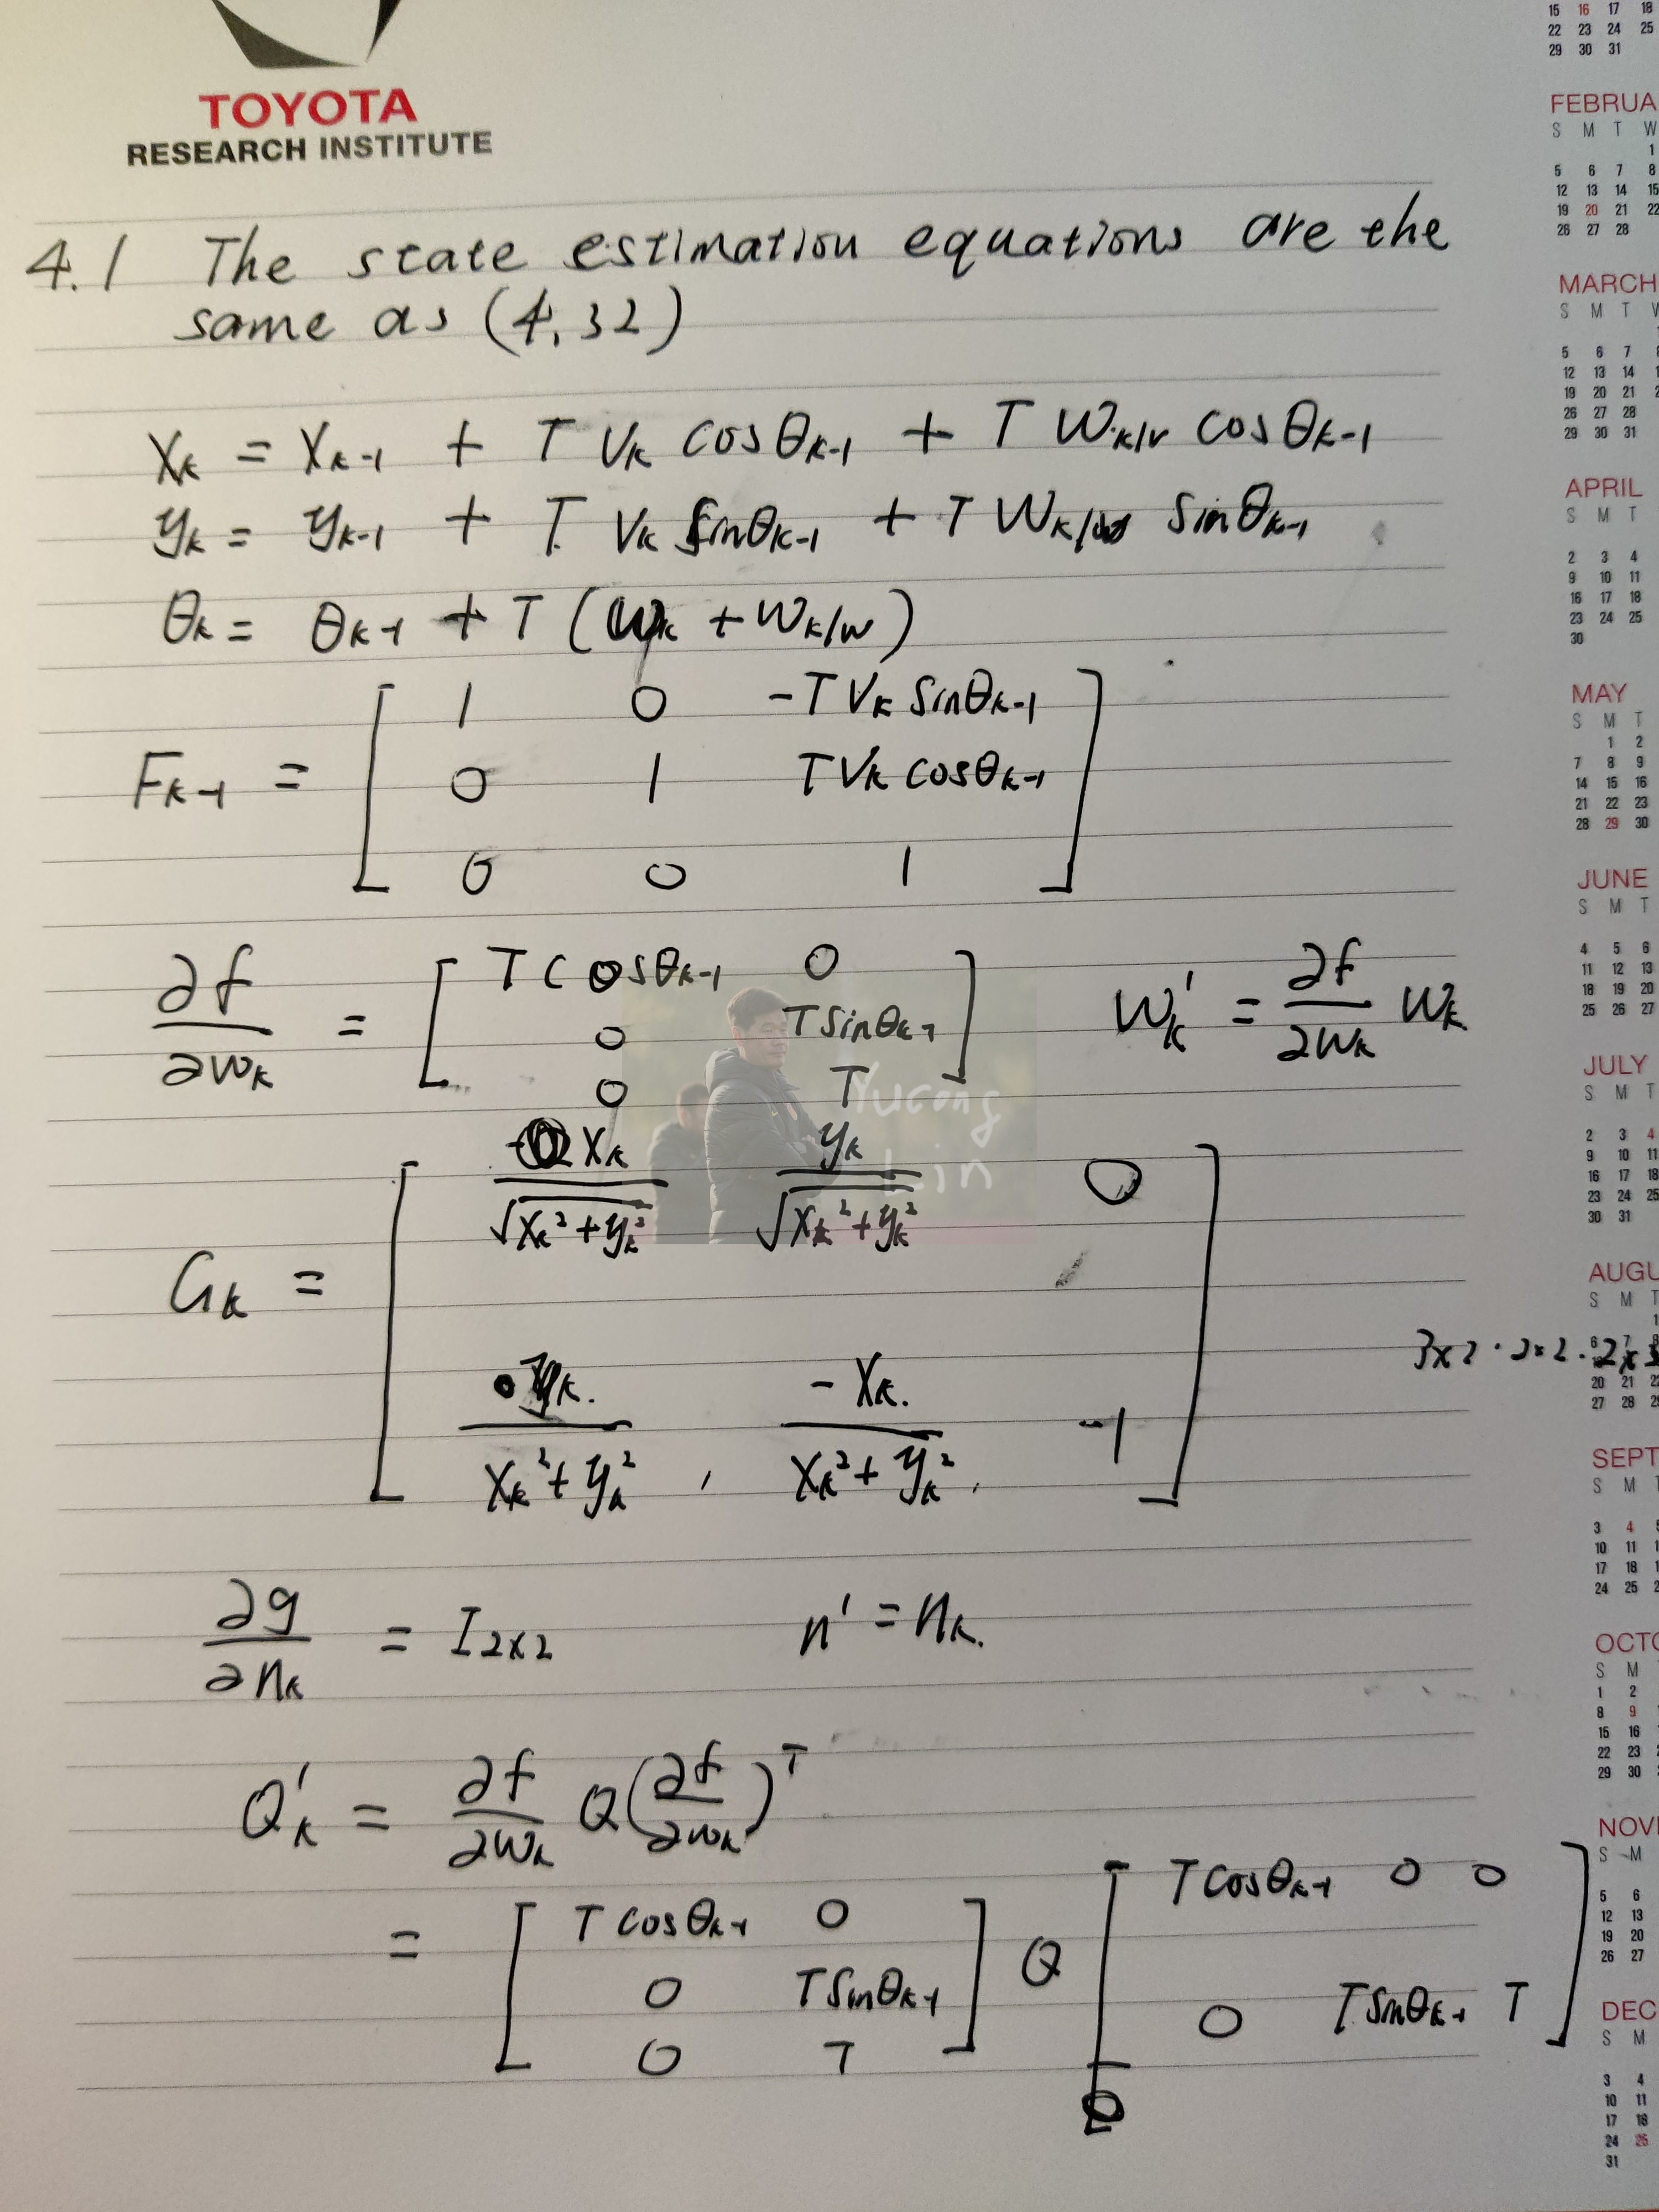 TOYOTA
RESEARCH INSTITUTE
4.1 The state estimation equations are the
same as (4.32)
x_k = x_{k-1} + T v_k cosθ_{k-1} + T w_{k/v} cosθ_{k-1}
y_k = y_{k-1} + T v_k sinθ_{k-1} + T w_{k/ω} sinθ_{k-1}
θ_k = θ_{k-1} + T (ω_k + w_{k/ω})
F_{k-1} = [ 1 0 -T v_k sinθ_{k-1}
0 1 T v_k cosθ_{k-1}
0 0 1 ]
∂f/∂w_k = [ T cosθ_{k-1} 0
0 T sinθ_{k-1}
0 T ] w'_k = ∂f/∂w_k w_k
Yucong
Lin
G_k = [ x_k/√(x_k²+y_k²) y_k/√(x_k²+y_k²) 0
y_k/(x_k²+y_k²), -x_k/(x_k²+y_k²), -1 ]
3x2 · 2x2 · 2x3
∂g/∂n_k = I_{2x2} n' = n_k.
Q'_k = ∂f/∂w_k Q (∂f/∂w_k)^T
= [ T cosθ_{k-1} 0
0 T sinθ_{k-1}
0 T ] Q [ T cosθ_{k-1} 0 0
0 T sinθ_{k-1} T ]
15 16 17 18
22 23 24 25
29 30 31
FEBRUA
S M T W
1
5 6 7 8
12 13 14 15
19 20 21 22
26 27 28
MARCH
S M T W
5 6 7 8
12 13 14 1
19 20 21 2
26 27 28
29 30 31
APRIL
S M T
2 3 4
9 10 11
16 17 18
23 24 25
30
MAY
S M T
1 2
7 8 9
14 15 16
21 22 23
28 29 30
JUNE
S M T
4 5 6
11 12 13
18 19 20
25 26 27
JULY
S M T
2 3 4
9 10 11
16 17 18
23 24 25
30 31
AUGU
S M T
1
6 7 8
20 21 22
27 28 29
SEPT
S M
3 4 5
10 11 1
17 18 1
24 25 2
OCTO
S M
1 2
8 9
15 16
22 23
29 30
NOVE
S M
5 6
12 13
19 20
26 27
DEC
S M
3 4
10 11
17 18
24 25
31